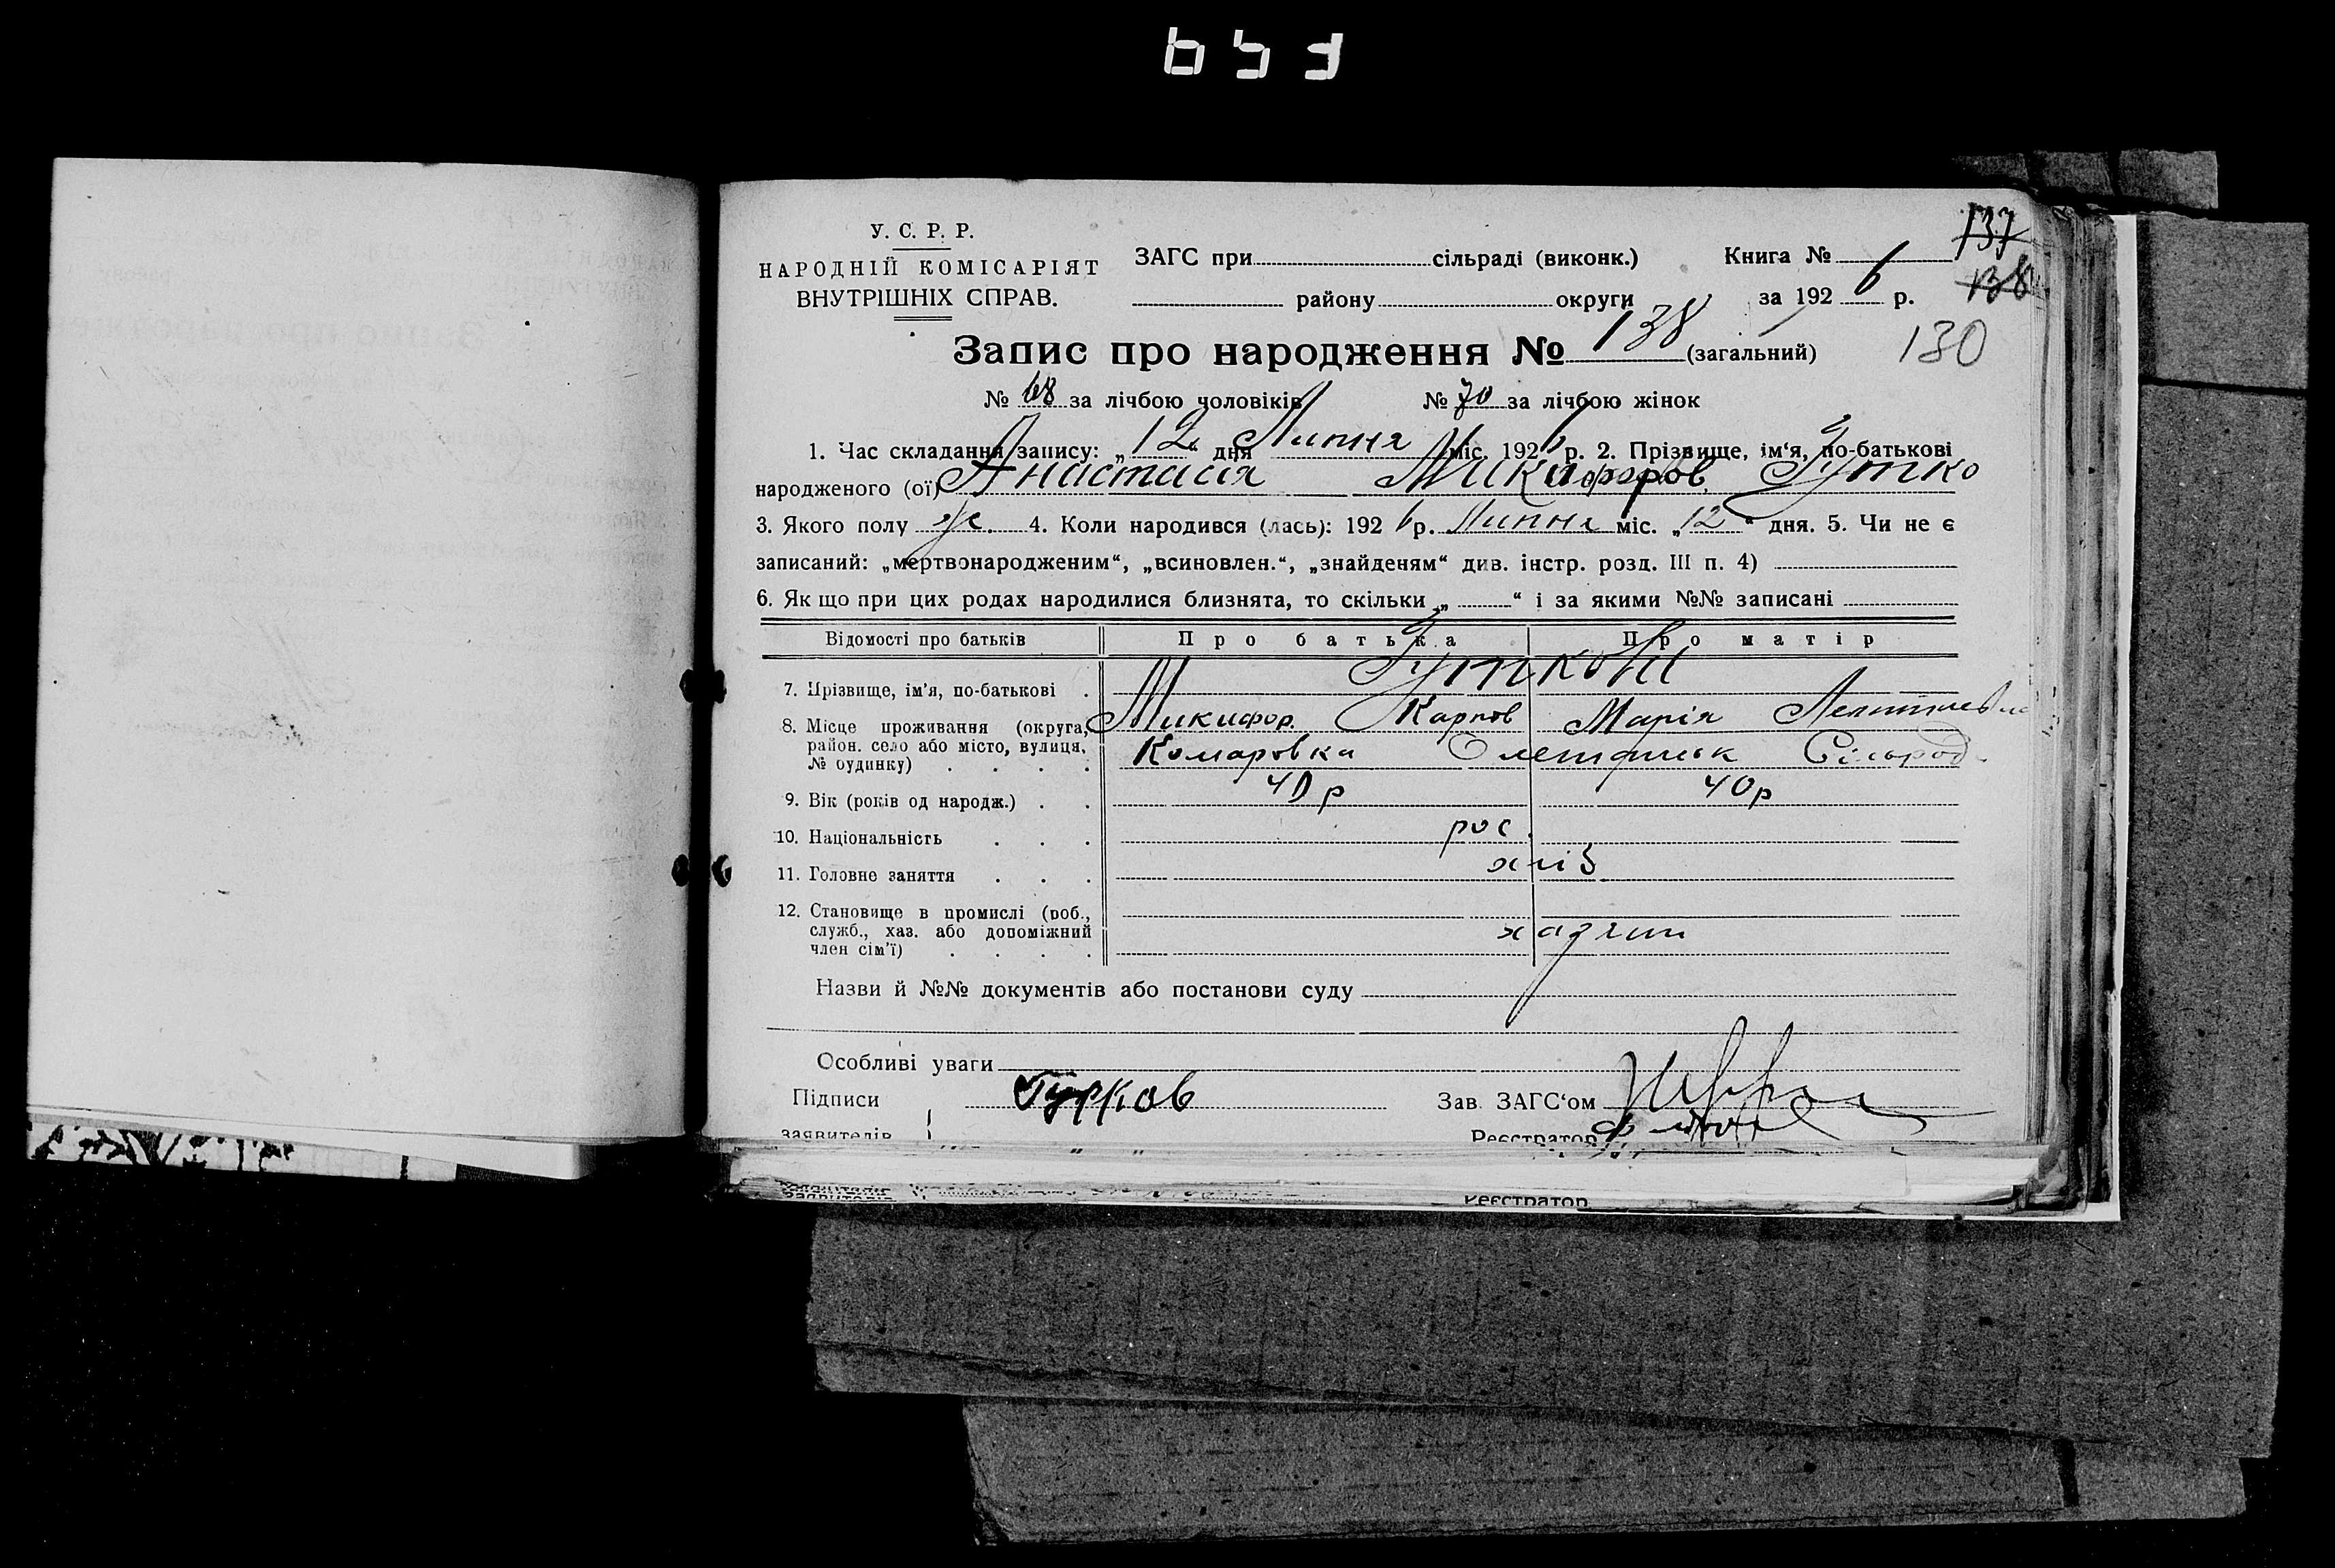 У. С. Р. Р.
НАРОДНІЙ КОМІСАРІЯТ
ВНУТРІШНІХ СПРАВ.
ЗАГС при сільраді (виконк.)
району округи
Книга №
за 1926 р.
137
138
130
Запис про народження № 138 (загальний)
№ 68 за лічбою чоловіків № 70 за лічбою жінок
1. Час складання запису: „12“ дня Липня міс. 1926 р. 2. Прізвище, ім‘я, по-батькові
народженого (ої) Анастасія Микифоров. Гутко
3. Якого полу ж. 4. Коли народився (лась): 1926 р. Липня міс. „12“ дня. 5. Чи не є
записаний: „мертвонародженим“, „всиновлен.“, „знайденям“ див. інстр. розд. III п. 4)
6. Як що при цих родах народилися близнята, то скільки „ “ і за якими №№ записані
Відомості про батьків Про батька Про матір
7. Прізвище, ім'я, по-батькові Гуткови
Микифор. Карпов Марія
8. Місце проживання (округа,
район. село або місто, вулиця,
№ будинку)
Комаровка Сільрод.
9. Вік (років од народж.) 40 р 40 р
10. Національність рос.
11. Головне заняття хліб
12. Становище в промислі (роб.,
служб., хаз. або допоміжний
член сім'ї)
Назви й №№ документів або постанови суду
Особливі уваги
Підписи
заявителів
Зав. ЗАГС‘ом
Реєстратор
Реєстратор